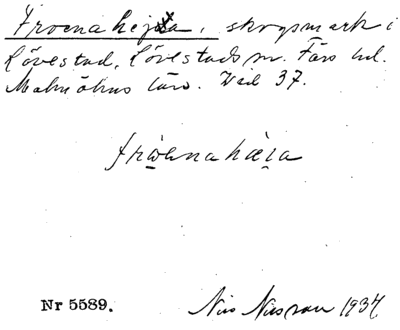 Froenaheja, skogsmark i
Lövestad, Lövestads sn. Färs hd.
Malmöhus län. Vad 37.
fröenahæja
Nr 5589.
Nils Nilsson 1937